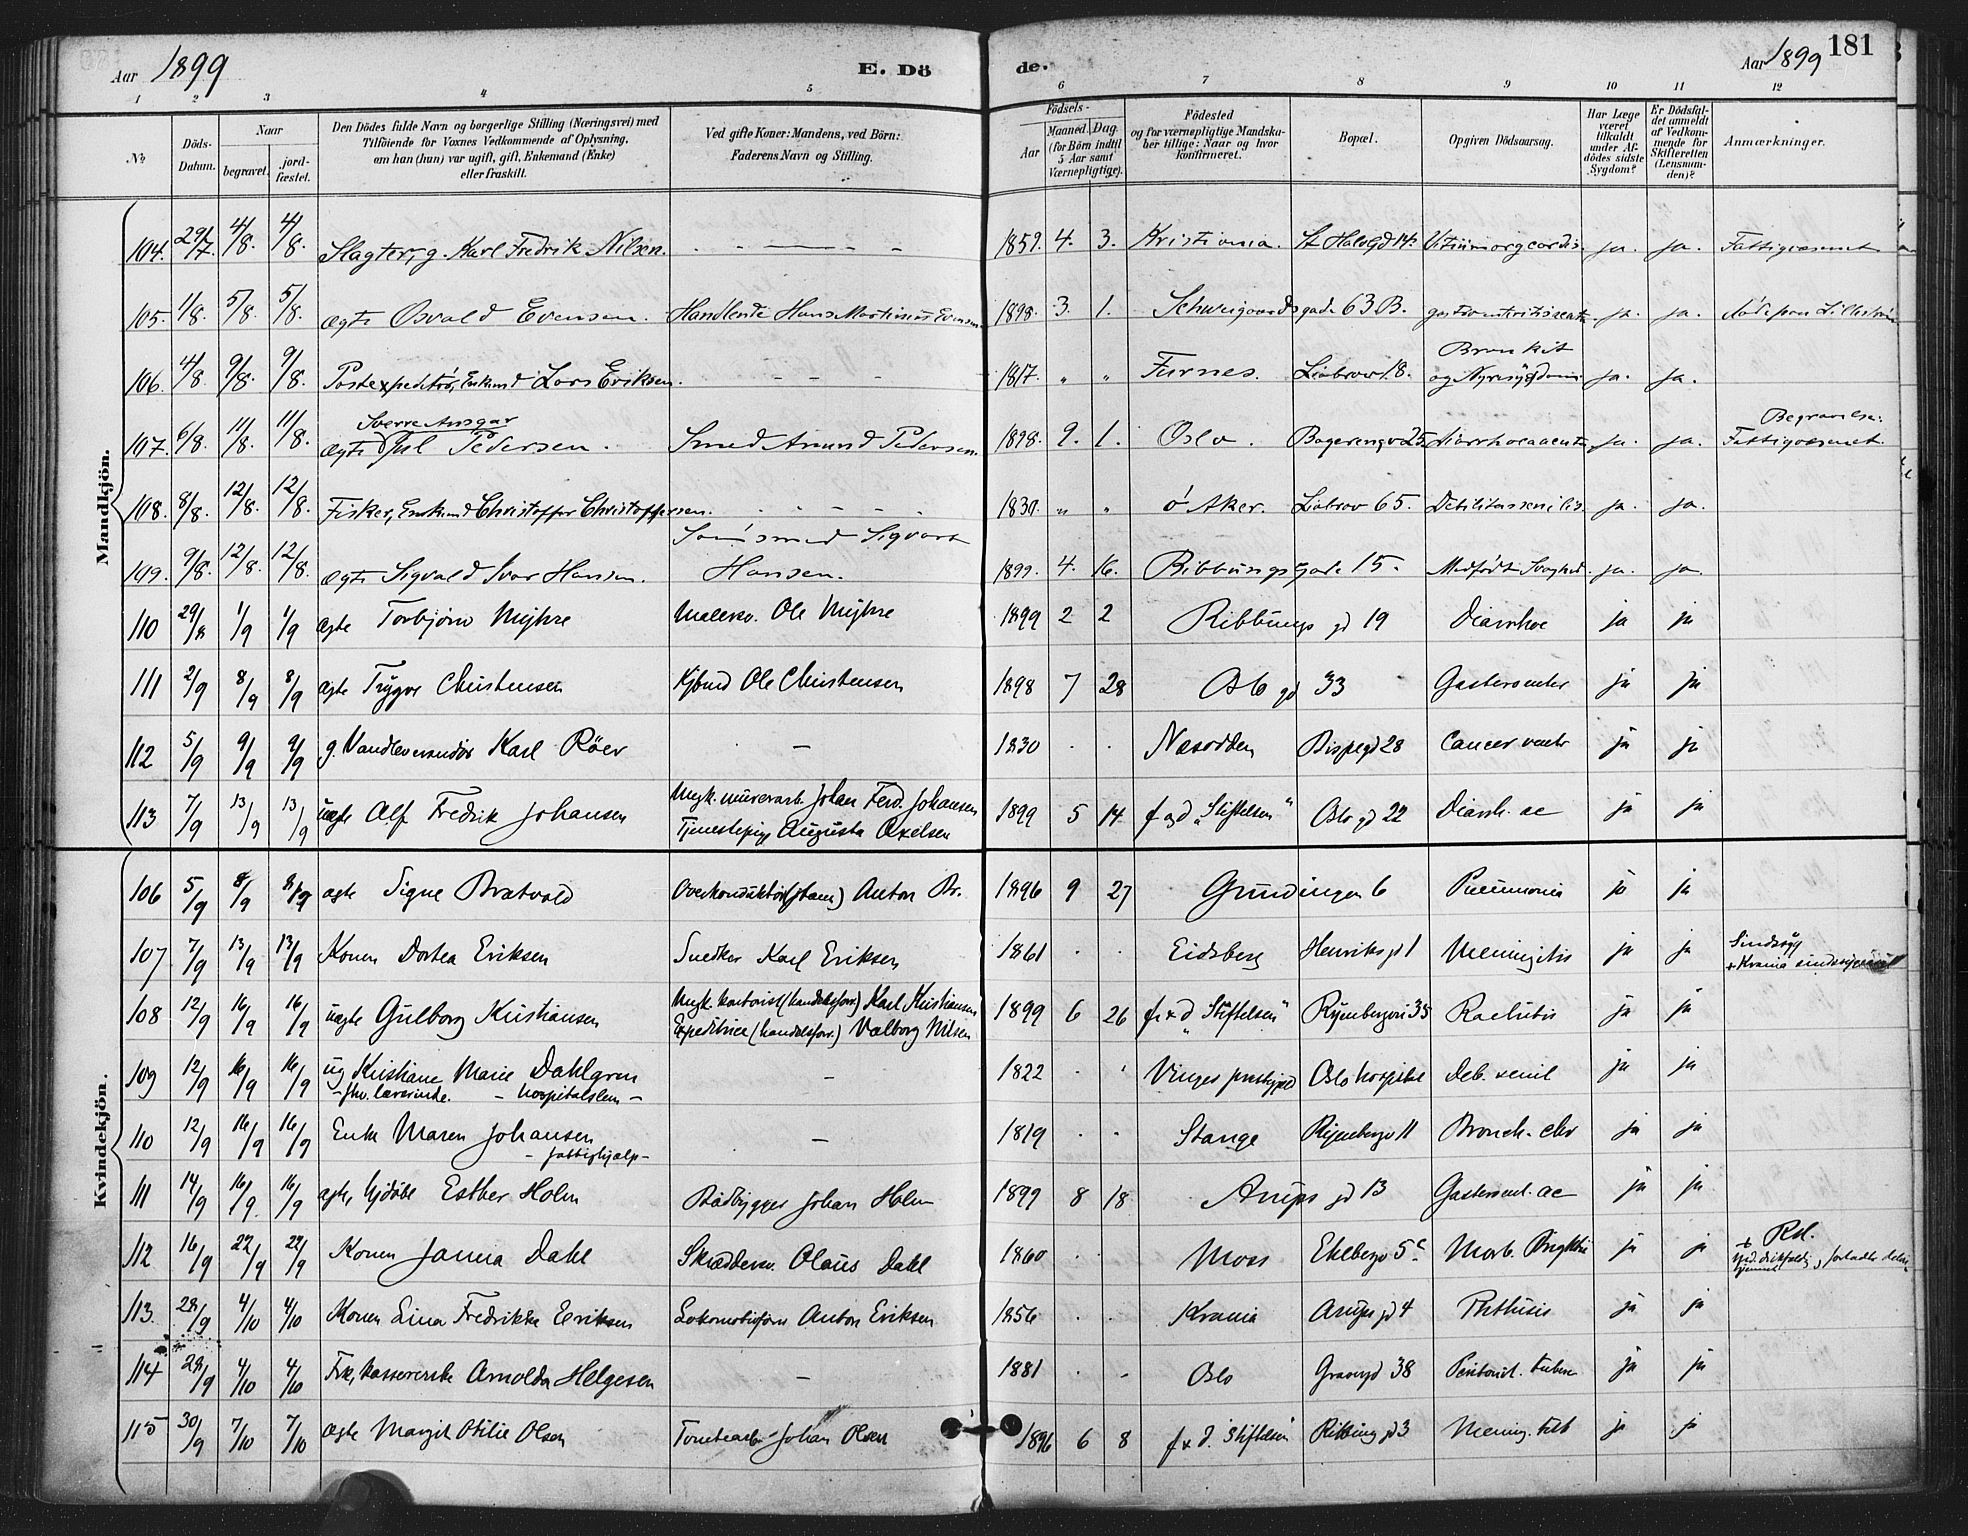 Aar 1899 E. Döde. Aar 1899 181
1 2 3 4 5 6 7 8 9 10 11 12
No
Döds-Datum.
Naar
begravet.
jord-fæstet.
Den Dödes fulde Navn og borgerlige Stilling (Næringsvei) med
Tilföiende for Voxnes Vedkommende af Oplysning,
om han (hun) var ugift, gift, Enkemand (Enke)
eller fraskilt.
Ved gifte Koner: Mandens, ved Börn:
Faderens Navn og Stilling.
Födsels-
Aar
Maaned. Dag.
(for Börn indtil
5 Aar samt
Værnepligtige).
Födested
og for værnepligtige Mandska-
ber tillige: Naar og hvor
konfirmeret.
Bopæl.
Opgiven Dödsaarsag.
Har Læge
været
tilkaldt
under Af-
dödes sidste
Sygdom?
Er Dödsfal-
det anmeldt
af Vedkom-
mende for
Skifteretten
(Lensman-
den)?
Anmærkninger.
Mandkjön.
104. 29/7. 4/8. 4/8. Slagter, g. Karl Fredrik Nilsen. 1859. 4. 3. Kristiania. St Halvgd 14. Vitium org cordis. ja. ja. Fattigvæsenet
105. 1/8. 5/8. 5/8. ægte Osvald Evensen. Handlende Hans Martinius Evensen 1898. 3. 1. Schweigaardsgade 63 B. ja. ja. Döde paa Lilleström
106. 4/8. 9/8. 9/8. Postexpeditör, Enkmd Lars Eriksen. 1817. " " Furnes. Liabrov 18. Bronkit og Nyresygdom ja. ja.
107. 6/8. 11/8. 11/8. ægte Sverre Ansgar Pedersen. Smed Amund Pedersen. 1898. 9. 1. Oslo. Bogerengv 25. Diarrhoea acuta ja. ja. Begravelse: Fattigvæsenet
108. 8/8. 12/8. 12/8. Fisker, Enkmd Christoffer Christoffersen. 1830. " " Ö Aker. Liabrov 65. Debilitas senilis. ja. ja.
109. 9/8. 12/8. 12/8. ægte Sigvald Ivar Hansen. Sigvart Hansen. 1899. 4. 16. Ribbungsgade 15. Medfödt Svaghed. ja. ja.
110 29/8 1/9 1/9 ægte Torbjörn Myhre Malersv. Ole Myhre 1899 2 2 Ribbungs gd 19 Diarrhoe ja ja
111 2/9 8/9 8/9 ægte Trygve Christensen Ole Christensen 1898 7 28 Oslo gd 33 Gastroenter ja ja
112 5/9 9/9 9/9 g. Vandleverandör Karl Röer — 1830 . . Næsodden Bispegd 28 Cancer ventr ja ja
113 7/9 13/9 13/9 uægte Alf Fredrik Johansen Ungk. murerarb. Johan Ferd. Johansen
Tjenestepige Augusta Axelsen 1899 5 14 f &d "Stiftelsen" Oslo gd 22 Diarrh. ac ja ja
Kvindekjön.
106 5/9 8/9 8/9 ægte Signe Bratvold Overkonduktör Anton Br. 1896 9 27 Grundingen 6 Pneumonia ja ja
107 7/9 13/9 13/9 Konen Dortea Eriksen Snedker Karl Eriksen 1861 . . Eidsberg Henriks gd 1 Meningitis ja ja Sindssyg
+ Krania sindssygeasyl
108 12/9 16/9 16/9 uægte Gulborg Kristiansen Ungk. kontorist (handelsforr.) Karl Kristiansen
Expeditrice (handelsforr.) Valborg Nilsen 1899 6 26 f & d "Stiftelsen" Ryenbergvei 35 Rachitis ja ja
109 12/9 16/9 16/9 ug Kristiane Marie Dahlgren
- fhv. lærerinde. - hospitalslem - — 1822 . . Vinger prestegjæld Oslo hospital Deb. senil ja ja
110 12/9 16/9 16/9 Enke Maren Johansen
- fattighjælp - — 1819 . . Stange Ryenbergv 11 Bronch. chr ja ja
111 14/9 16/9 16/9 ægte, hjdöbt Esther Holm Baadbygger Johan Holm 1899 8 18 Arups gd 13 Gastroent. ac ja ja
112 16/9 22/9 22/9 Konen Janna Dahl Skræddersv. Olaus Dahl 1860 . . Moss Ekebergv 5c Morb. Brightii ja ja + Rh.
113. 28/9 4/10 4/10 Konen Lina Fredrikke Eriksen Lokomotivförer Anton Eriksen 1856 . . Krania Arups gd 4 Phthisis ja ja
114 28/9 4/10 4/10 Frk, kassererske Arnolda Helgesen — 1881 . . Oslo Grønlgd 38 Peritonit. tuberc ja ja
115 30/9 7/10 7/10 ægte Margit Otilie Olsen Tomtearb. Johan Olsen 1896 6 8 f & d. "Stiftelsen" Ribbung gd 3 Mening. tub ja ja